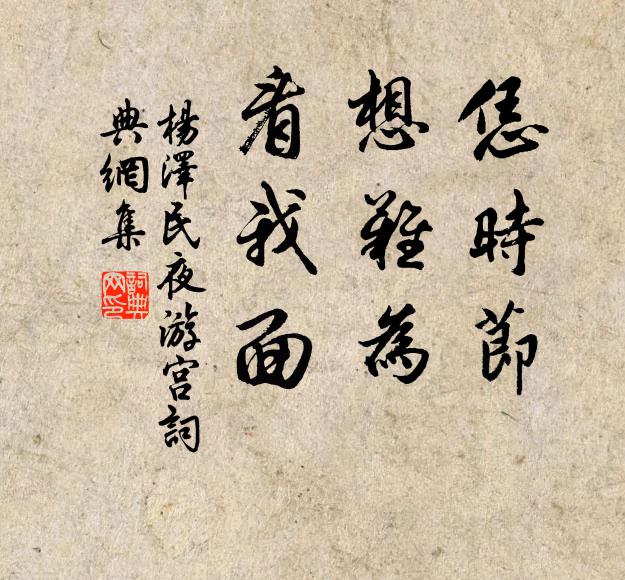 恁時節
想難為
看我面
楊澤民夜游宮詞
典網集
詞典網印